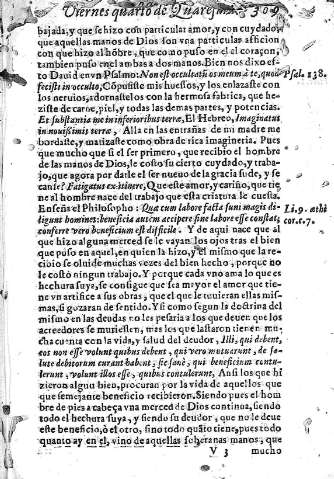 Viernes quarto de Quaresma. 309
bajada, y que se hizo con particular amor, y con cuydado,
que aquellas manos de Dios son vna particular aficion
con que hizo al hõbre, que como puso en el el coraçon,
tambien puso en el ambas a dos manos. Bien nos dixo es-
to Dauid en vn Psalmo: Non est occultatũ os meum à te, quod Psal. 138.
fecisti in occulto, Cõpusiste mis huessos, y los enlazaste con
los neruios, adornastelos con la hermosa fabrica, que he-
ziste de carne, piel, y todas las demas partes, y potencias.
Et substantia me in inferioribus terræ, El Hebreo, Imaginatus
in nouissimis terræ, Alla en las entrañas de mi madre me
bordaste, y matizaste como obra de rica imagineria. Pues
que mucho que si el ser primero, que recibio el hombre
de las manos de Dios, le costo su cierto cuydado, y traba-
jo, que agora por darle el ser nueuo de la gracia sude, y se
canse? Fatigatus ex itinere, Que este amor, y cariño, que tie-
ne al hombre nace del trabajo que esta criatura le cuesta.
Enseña el Philosopho: Quæ cum labore facta sunt magis di- Li. 9. æthi
ligunt homines: beneficia autem accipere sine labore esse constat, cor. c. 7.
conferre vero beneficium est difficile. Y de aqui nace que al
que hizo alguna merced se le vayan los ojos tras el bien
que puso en aquel, en quien la hizo, y el mismo que la re-
cibio se oluide muchas vezes del bien hecho, porque no
le costò ningun trabajo. Y porque cada vno ama lo que es
hechura suya, se consigue que sea mayor el amor que tie-
ne vn artifice a sus obras, que el que le tuuieran ellas mis-
mas, si gozaran de sentido. Y si como segun la doctrina del
mismo en las deudas no les pesaria a los que deuen que los
acreedores se muriessen, mas los que lastaron tienen mu-
cha cuenta con la vida, y salud del deudor, Illi, qui debent,
eos non esse volunt quibus debent, qui vero mutuarunt, de sa-
lute debitorum curant habent; sic sanè, qui beneficium contu-
lerunt, volunt illos esse, quibus contulerunt, Ansi los que hi
zieron algun bien, procuran por la vida de aquellos que
que semejante beneficio recibieron. Siendo pues el hom
bre de pies a cabeça vna merced de Dios continua, siendo
todo el hechura suya, y siendo su deudor, que no le deue
este beneficio, ò el otro, sino todo quãto tiene, pues todo
quanto ay en el, vino de aquellas soberanas manos, que
V 3 mucho